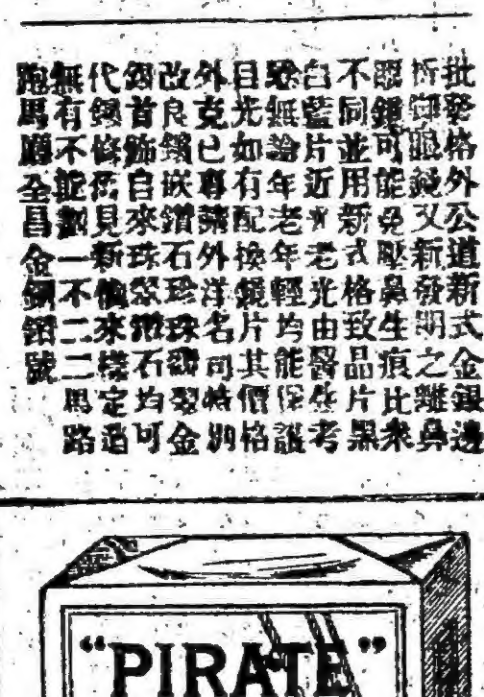 批發格外公道新式金銀邊
折御眼鏡又新發明之離鼻
眼鏡可能免壓鼻生痕比衆
不同並用新式格致品片黑
白藍片近光老光由醫生考
驗無論年老年輕均能保護
目光如有配換鏡片其價格
外克已專辦外洋名司特別
改良鑲嵌鑽石珍珠翡翠金
銀首飾自來珠翠鑽石均可
代鑲修舊見新儻來樣定造
無有不能劃一不二二馬路
跑馬廳全昌金銀鋪號
"PIRATE"